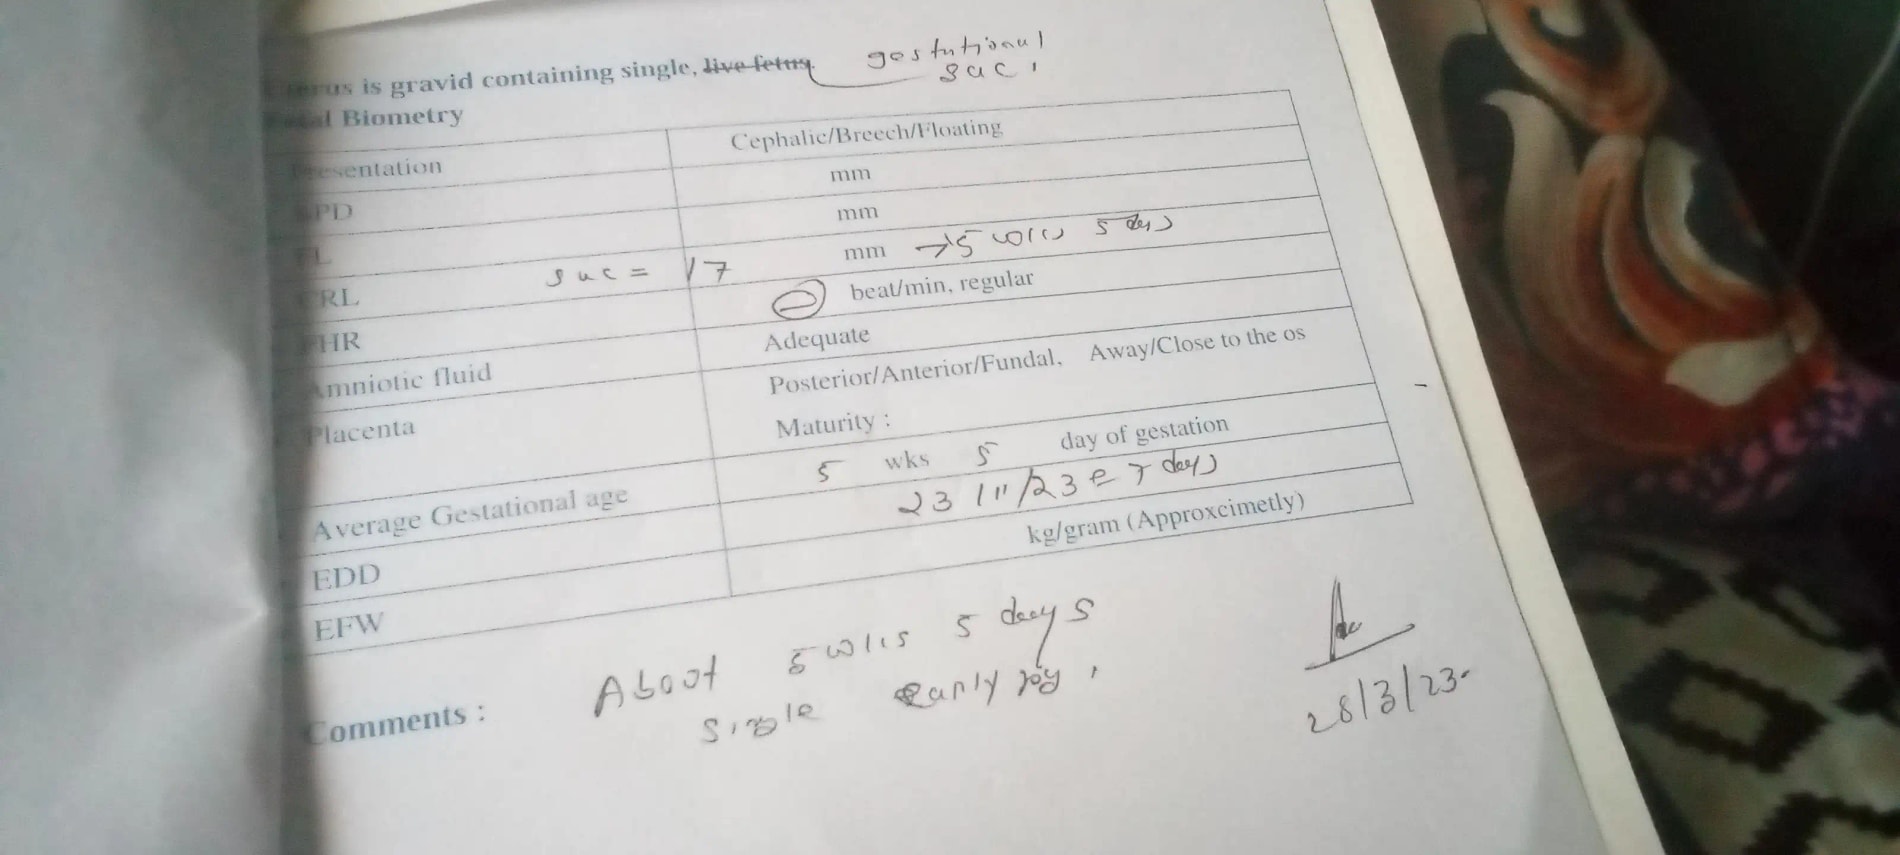 is gravid containing single, live fetus. gestutional
suc.
Biometry
Presentation Cephalic/Breech/Floating
BPD mm
FL mm
CRL suc = 17 mm → 5 wks 5 days
FHR beat/min, regular
Amniotic fluid Adequate
Placenta Posterior/Anterior/Fundal, Away/Close to the os
Maturity :
Average Gestational age 5 wks 5 day of gestation
EDD 23/11/23 e 7 days
EFW kg/gram (Approxcimetly)
Comments : About 5 wks 5 days
single early
28/3/23